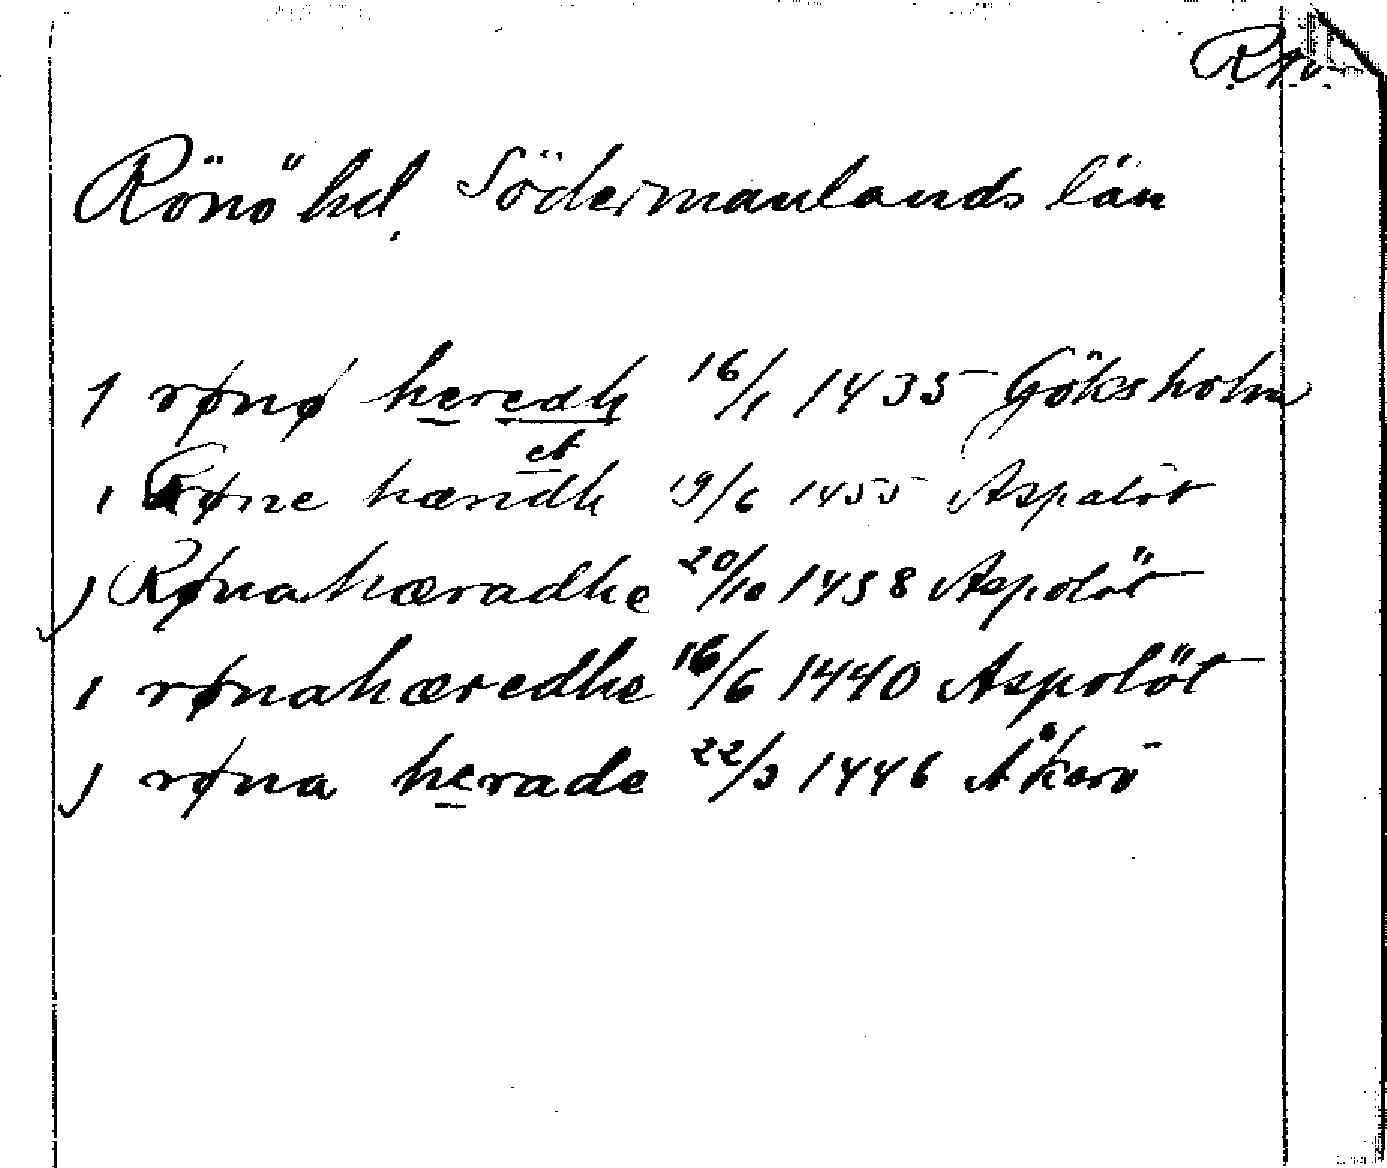 Rönö hd. Södermanlands län
1 rønø heredh 16/1 1435 Göksholm
et
1 Røne hærdh 19/6 1455 Aspalöt
j Rønahæradhe 20/10 1438 Aspolöt
1 rønahæredhe 16/6 1440 Aspolöt
j røna herade 22/3 1446 Åkerö